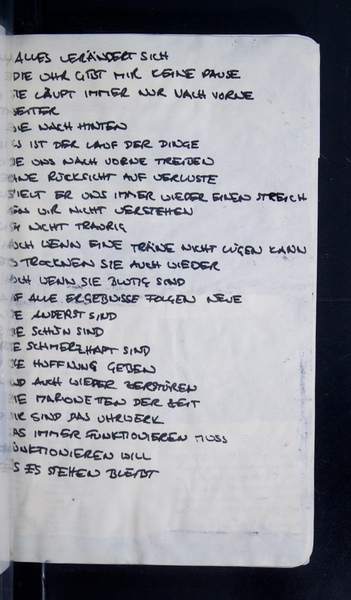 ALLES VERÄNDERT SICH
DIE UHR GIBT MIR KEINE PAUSE
SIE LÄUFT IMMER NUR NACH VORNE
WEITER
NIE NACH HINTEN
ES IST DER LAUF DER DINGE
DIE UNS NACH VORNE TREIBEN
OHNE RÜCKSICHT AUF VERLUSTE
SPIELT ER UNS IMMER WIEDER EINEN STREICH
DEN WIR NICHT VERSTEHEN
NICHT TRAURIG
AUCH WENN EINE TRÄNE NICHT LÜGEN KANN
TROCKNEN SIE AUCH WIEDER
AUCH WENN SIE BLUTIG SIND
AUF ALLE ERGEBNISSE FOLGEN NEUE
DIE ANDERST SIND
DIE SCHÖN SIND
DIE SCHMERZHAFT SIND
DIE HOFFNUNG GEBEN
UND AUCH WIEDER ZERSTÖREN
DIE MARIONETTEN DER ZEIT
WIR SIND DAS UHRWERK
DAS IMMER FUNKTIONIEREN MUSS
FUNKTIONIEREN WILL
BIS ES STEHEN BLEIBT